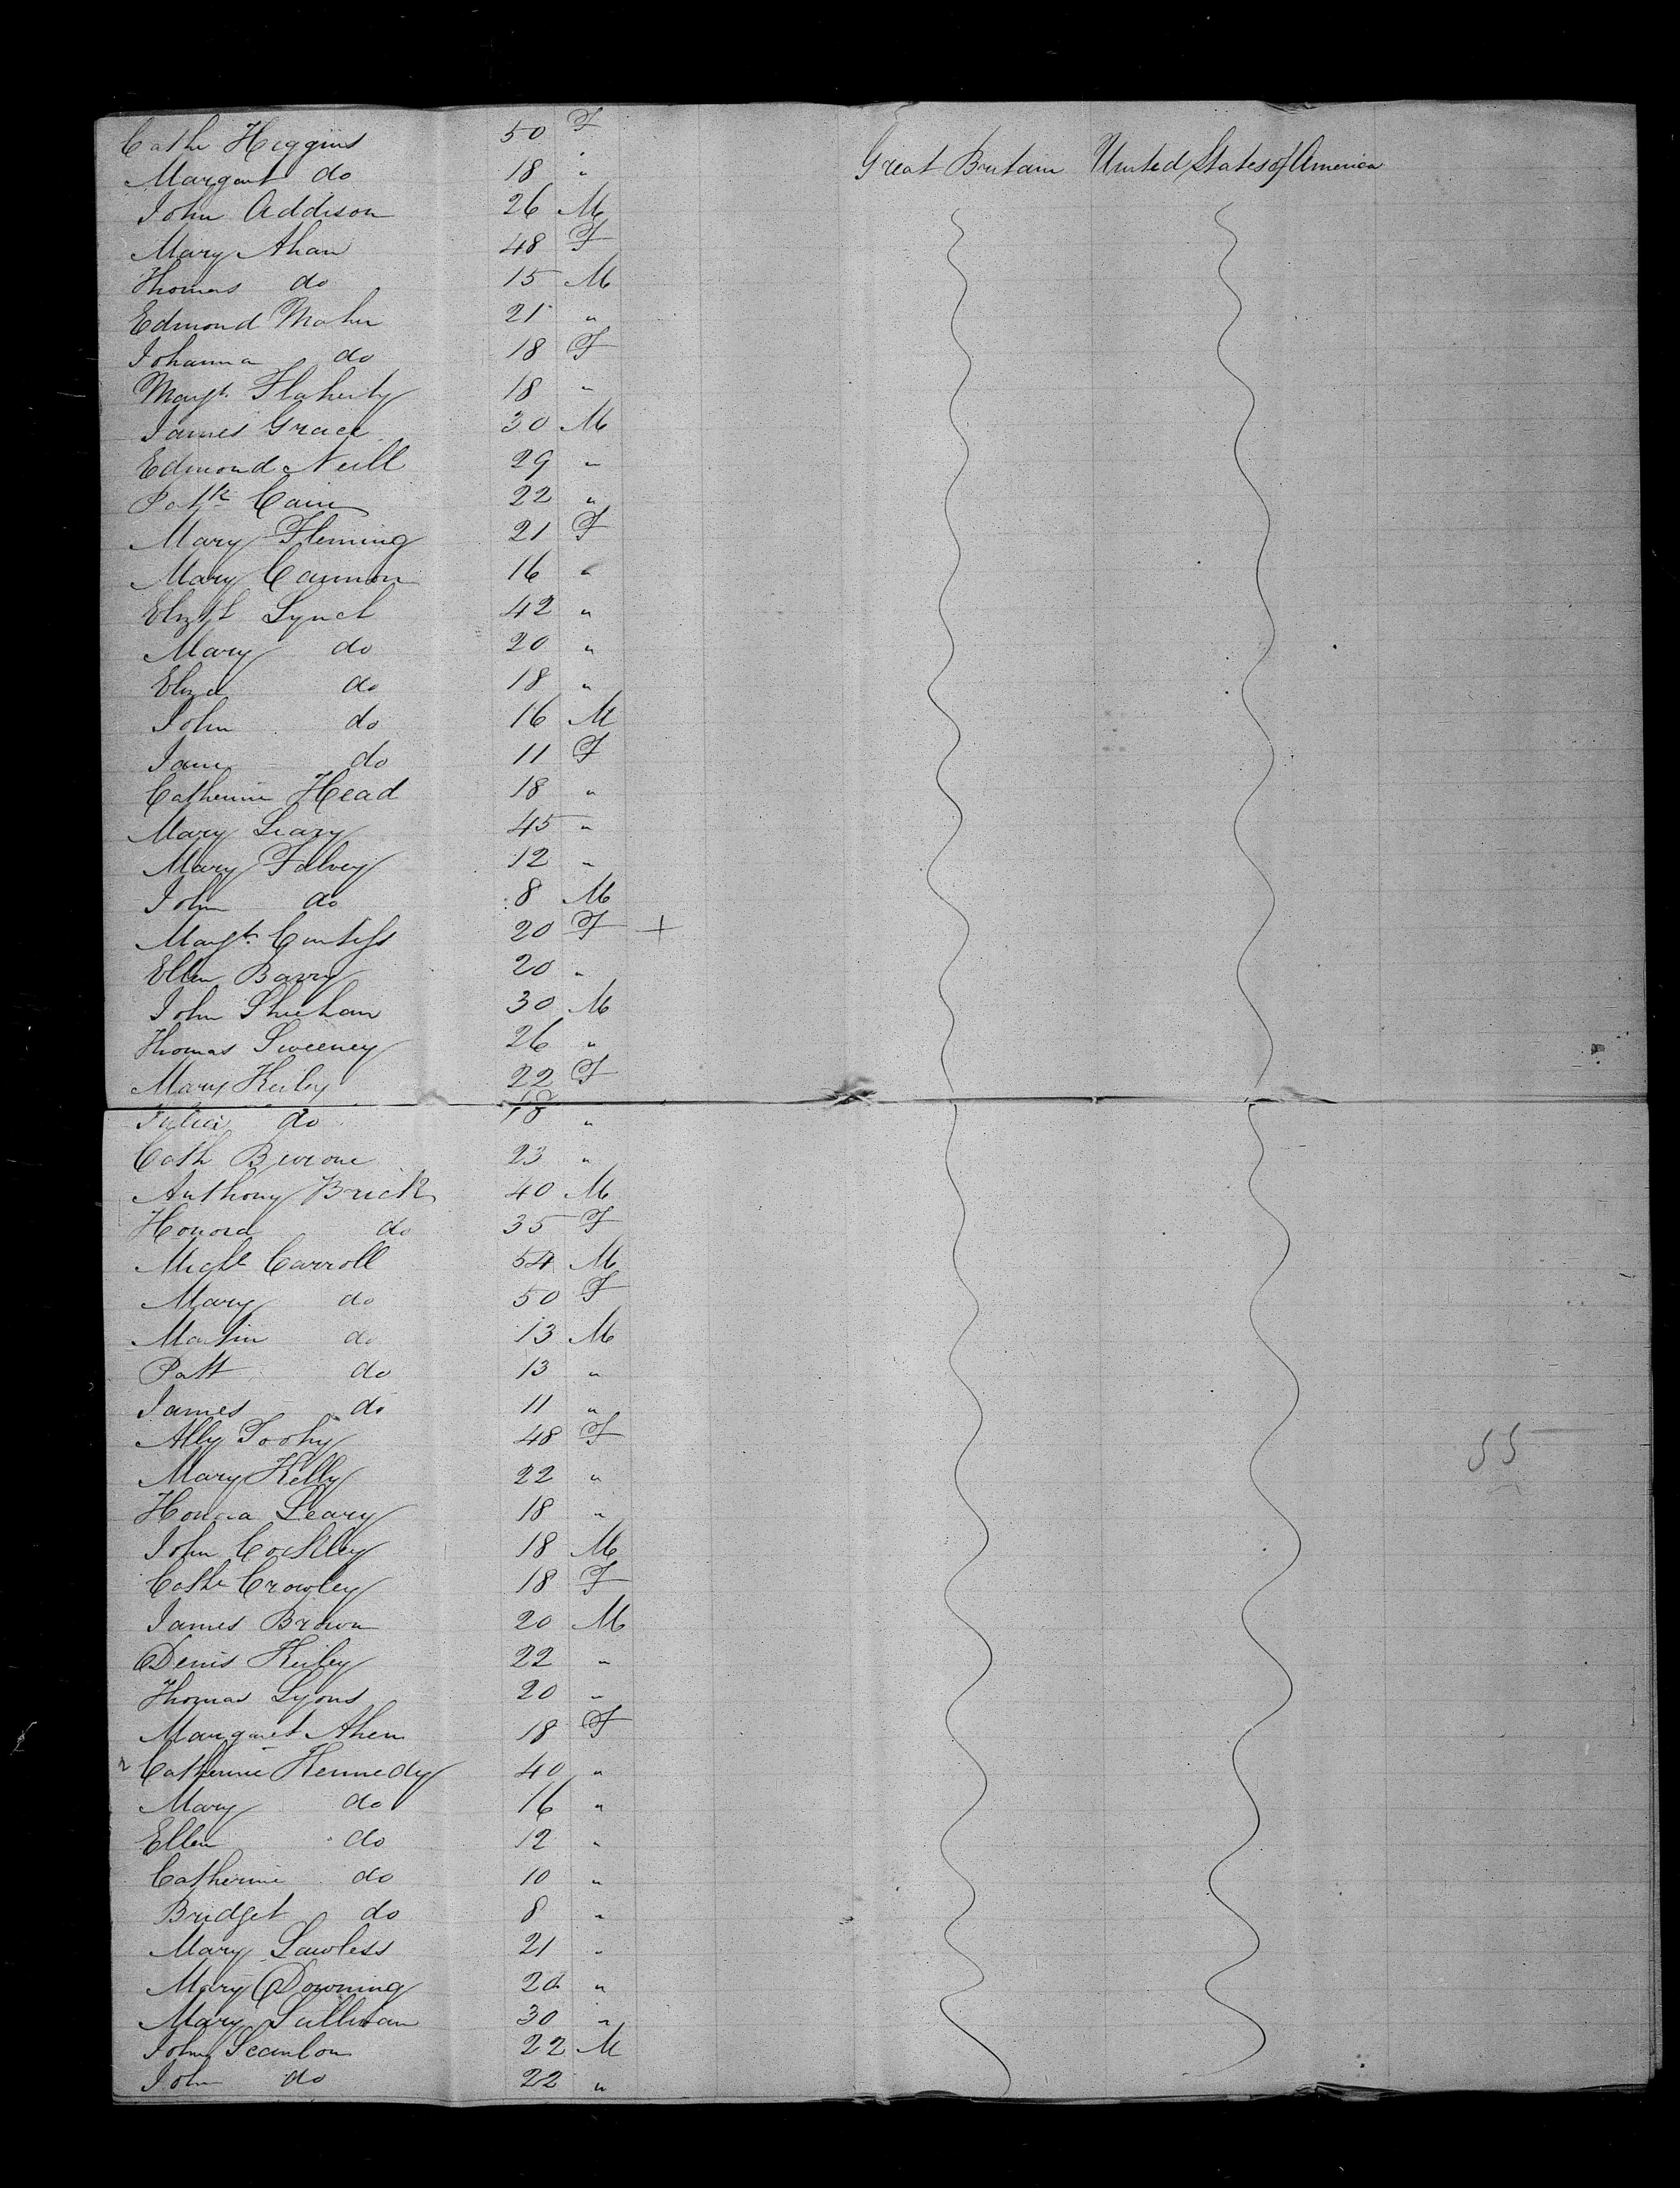 Cathe Higgins 50 F
Margaret do 18 " Great Britain United States of America
John Addison 26 M
Mary Ahan 48 F
Thomas do 15 M
Edmond Maher 21 "
Johanna do 18 F
Margt. Flaherty 18 "
James Grace 30 M
Edmond Neill 29 "
Patk Cain 22 "
Mary Fleming 21 F
Mary Cannon 16 "
Elizth Lynch 42 "
Mary do 20 "
Eliza do 18 "
John do 16 M
Jane do 11 F
Catherine Head 18 "
Mary Leary 45 "
Mary Falvey 12 "
John do 8 M
Margt. 20 F +
Ellen Barry 20 "
John Sheehan 30 M
Thomas Sweeney 26 "
Mary Keiley 22 F
Julia do 18 "
Cath 23 "
Anthony Brick 40 M
Honora do 35 F
Michl Carroll 54 M
Mary do 50 F
Martin do 13 M
Patt do 13 "
James do 11 "
Ally Toohy 48 F
Mary Kelly 22 "
Honora Leary 18 "
John Coakley 18 M
Cathe Crowley 18 F
James Brown 20 M
Denis Keiley 22 "
Thomas Lyons 20 "
Margaret Ahern 18 F
Catherine Kennedy 40 "
Mary do 16 "
Ellen do 12 "
Catherine do 10 "
Bridget do 8 "
Mary Lawless 21 "
Mary Downing 20 "
Mary Sullivan 30 "
John Scanlon 22 M
John do 22 "
55